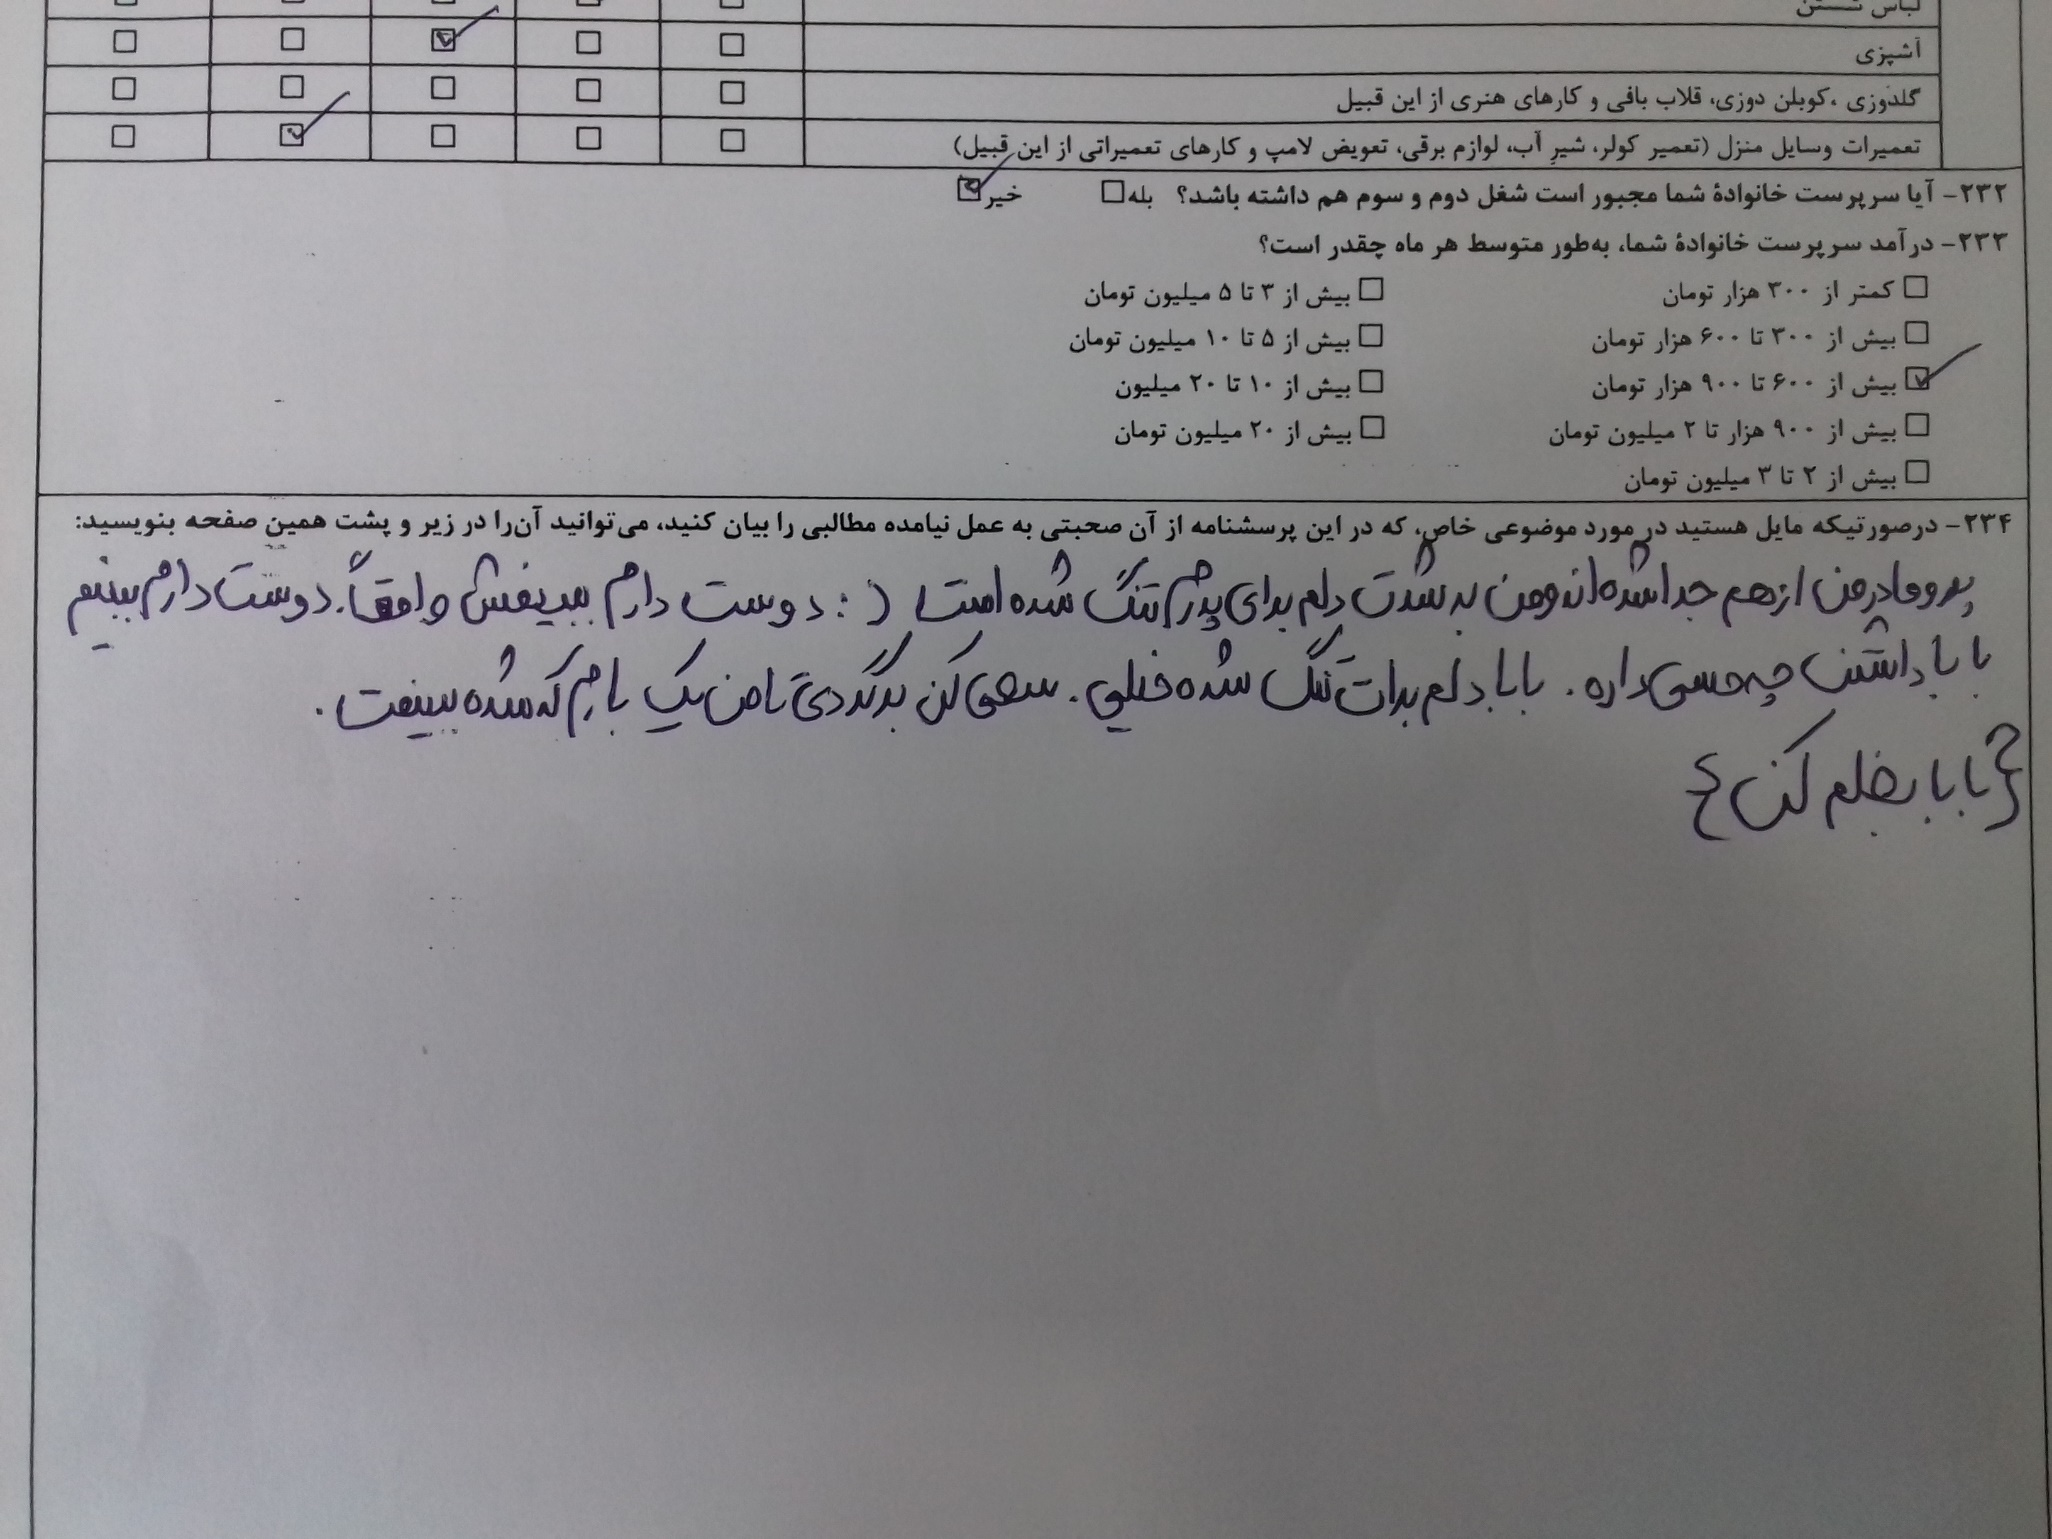 لباس شستن
آشپزی
گلدوزی، کوبلن دوزی، قلاب بافی و کارهای هنری از این قبیل
تعمیرات وسایل منزل (تعمیر کولر، شیرِ آب، لوازم برقی، تعویض لامپ و کارهای تعمیراتی از این قبیل)
۲۳۲- آیا سرپرست خانوادهٔ شما مجبور است شغل دوم و سوم هم داشته باشد؟ بله خیر
۲۳۳- درآمد سرپرست خانوادهٔ شما، به‌طور متوسط هر ماه چقدر است؟
کمتر از ۳۰۰ هزار تومان بیش از ۳ تا ۵ میلیون تومان
بیش از ۳۰۰ تا ۶۰۰ هزار تومان بیش از ۵ تا ۱۰ میلیون تومان
بیش از ۶۰۰ تا ۹۰۰ هزار تومان بیش از ۱۰ تا ۲۰ میلیون
بیش از ۹۰۰ هزار تا ۲ میلیون تومان بیش از ۲۰ میلیون تومان
بیش از ۲ تا ۳ میلیون تومان
۲۳۴- درصورتیکه مایل هستید در مورد موضوعی خاص، که در این پرسشنامه از آن صحبتی به عمل نیامده مطالبی را بیان کنید، می‌توانید آن‌را در زیر و پشت همین صفحه بنویسید:
پدر و مادر من از هم جدا شده‌اند و من به شدت دلم برای پدرم تنگ شده است ): دوست دارم ببینمش واقعاً. دوست دارم ببینم
بابا داشتن چه حسی داره. بابا دلم برات تنگ شده خیلی. سعی کن برگردی تا من یک بارم که شده ببینمت.
{بابا بغلم کن}